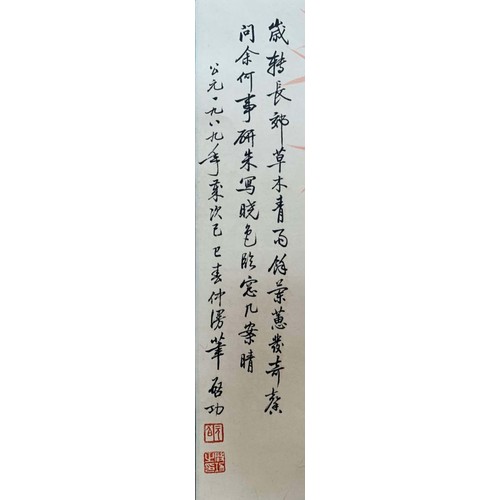 歲轉長郊草木青雨餘叢蕙發奇馨
問余何事研朱寫曉色臨窓几案晴
公元一九八九年歲次己巳春仲漫筆 啟功